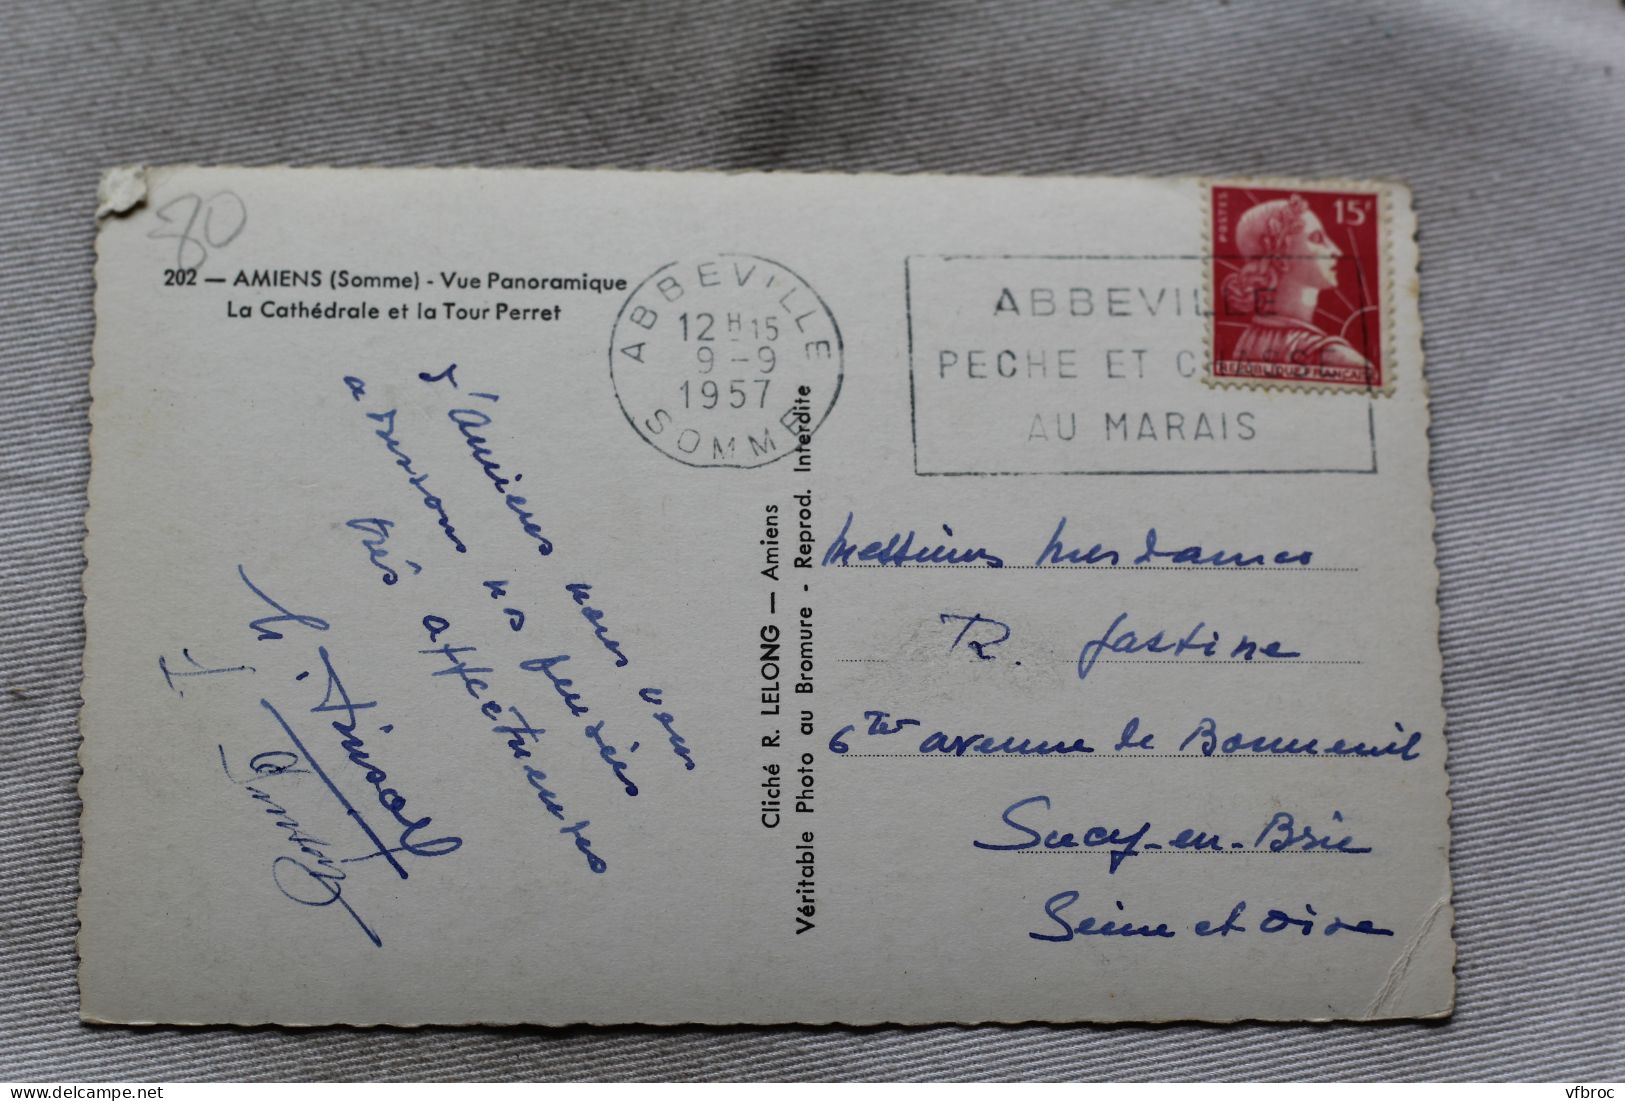 80
202 — AMIENS (Somme) - Vue Panoramique
La Cathédrale et la Tour Perret
d'Amiens nous vous
adressons nos pensées
très affectueuses
ABBEVILLE
12 H 15
9 - 9
1957
SOMME
Cliché R. LELONG — Amiens
Véritable Photo au Bromure - Reprod. Interdite
ABBEVILLE
PECHE ET CHASSE
AU MARAIS
POSTES
15F
REPUBLIQUE FRANÇAISE
Messieurs Mesdames
R. Jastine
6 Ter avenue de Bonneuil
Sucy-en-Brie
Seine et Oise
vfbroc